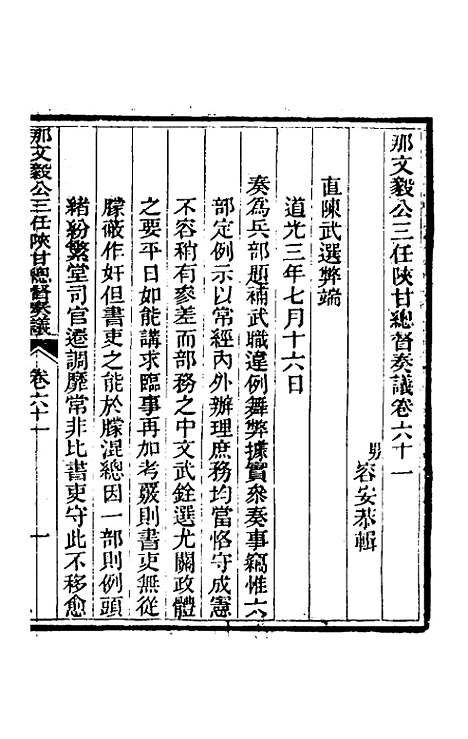 那文毅公三任陝甘總督奏議卷六十一
男
容安恭輯
直陳武選弊端
道光三年七月十六日
奏爲兵部題補武職違例舞弊據實叅奏事竊惟六
部定例示以常經內外辦理庶務均當恪守成憲
不容稍有參差而部務之中文武銓選尤關政體
之要平日如能講求臨事再加考覈則書吏無從
朦蔽作奸但書吏之能於朦混總因一部則例頭
緒紛繁堂司官遷調靡常非比書吏守此不移愈
那文毅公三任陝甘總督奏議
卷六十一
一